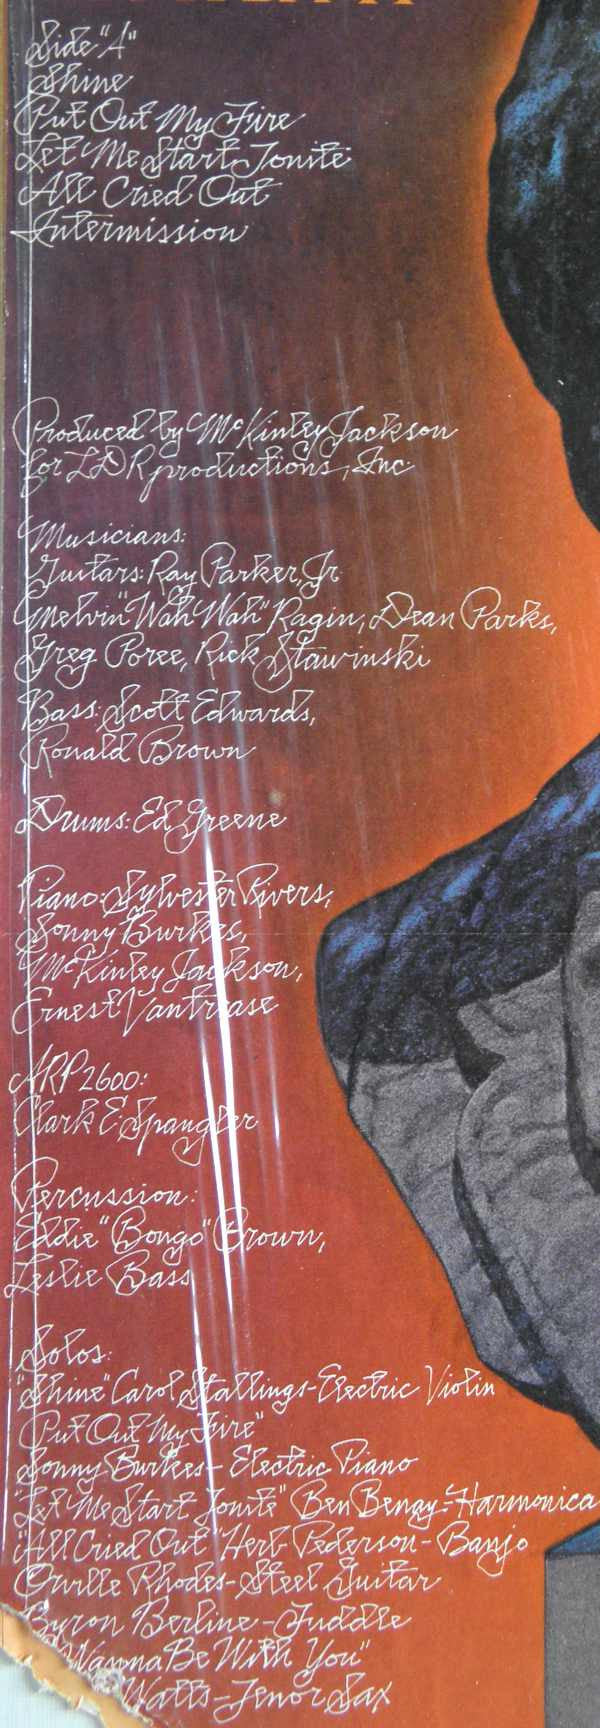 Side "A"
Shine
Put Out My Fire
Let Me Start Tonite
All Cried Out
Intermission
Produced by McKinley Jackson
for LDR productions, Inc
Musicians:
Guitars: Ray Parker, Jr
Melvin "Wah Wah" Ragin, Dean Parks,
Greg Poree, Rick Stawinski
Bass: Scott Edwards,
Ronald Brown
Drums: Ed Greene
Piano: Sylvester Rivers,
Sonny Burkes,
McKinley Jackson,
Ernest Vantrease
ARP 2600:
Clark E Spangler
Percussion:
Eddie "Bongo" Brown,
Leslie Bass
Solos:
"Shine" Carol Stallings-Electric Violin
"Put Out My Fire"
Sonny Burkes-Electric Piano
"Let Me Start Tonite" Ben Bengy-Harmonica
"All Cried Out" Herb Pederson-Banjo
Orville Rhodes-Steel Guitar
Byron Berline-Fuddle
Wanna Be With You"
Watts-Tenor Sax